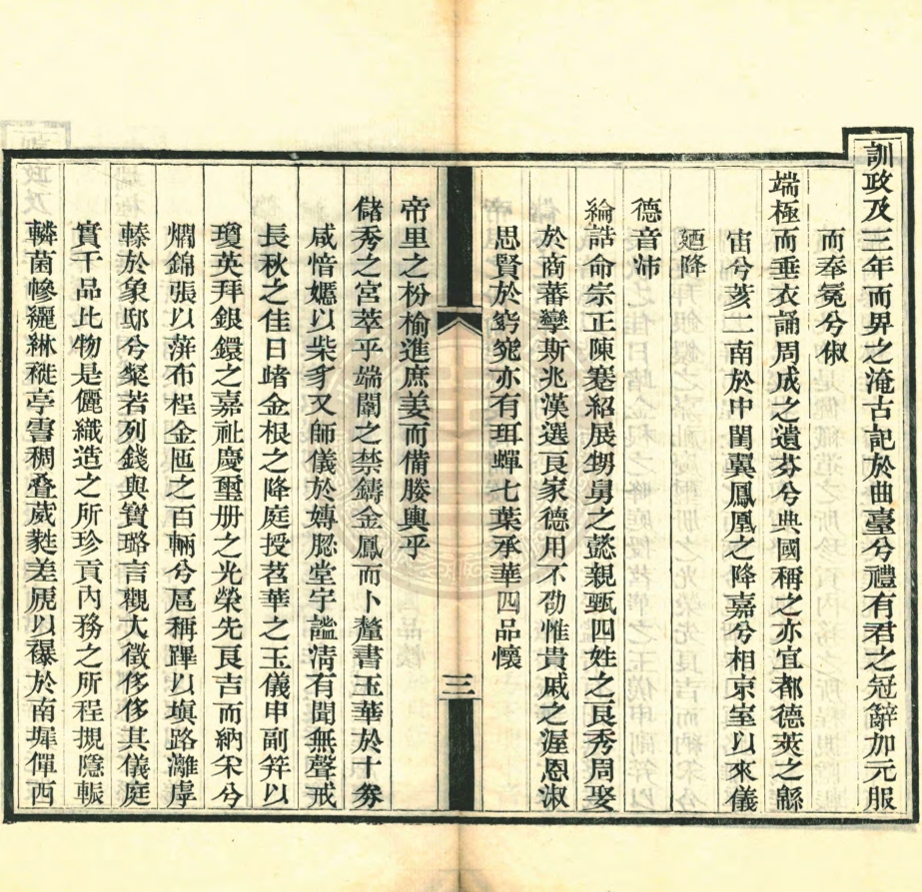 訓政及三年而畀之淹古記於曲臺兮禮有君之冠辭加元服
而奉冕兮俶
端極而垂衣誦周成之遺芬兮典國稱之亦宜都德莢之緜
宙兮荄二南於中閨翼鳳凰之降嘉兮相京室以來儀
廼降
德音沛
綸誥命宗正陳蹇紹展甥舅之懿親甄四姓之良秀周娶
於商蕃孿斯兆漢選良家德用不劭惟貴戚之渥恩淑
思賢於窈窕亦有珥蟬七葉承華四品懷
三
帝里之枌榆進庶姜而備媵輿乎
儲秀之宮萃乎端闈之禁鑄金鳳而卜釐書玉華於十劵
咸愔嫕以柴豸又師儀於嫥腮堂宇謐清有聞無聲戒
長秋之佳日峙金根之降庭授苕華之玉儀申副笄以
瓊英拜銀鐶之嘉祉慶璽册之光榮先良吉而納采兮
爓錦張以荓布桯金匜之百輛兮扈稱蹕以塡路灕虖
轃於象邸兮粲若列錢與寶璐言觀大徵侈侈其儀庭
實千品此物是儷織造之所珍貢內務之所程槻隱賑
轔菌幓纚綝褷亭雲稠疊葳蕤差虒以襮於南墀僤西